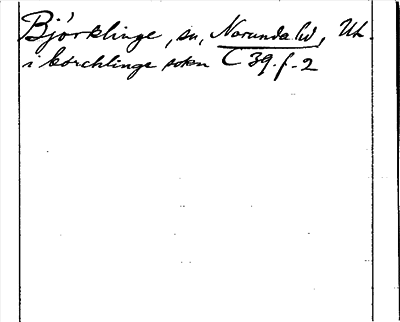 Björklinge, sn, Norunda hd, Uh.
i børchlinge sokn C 39. f. 2